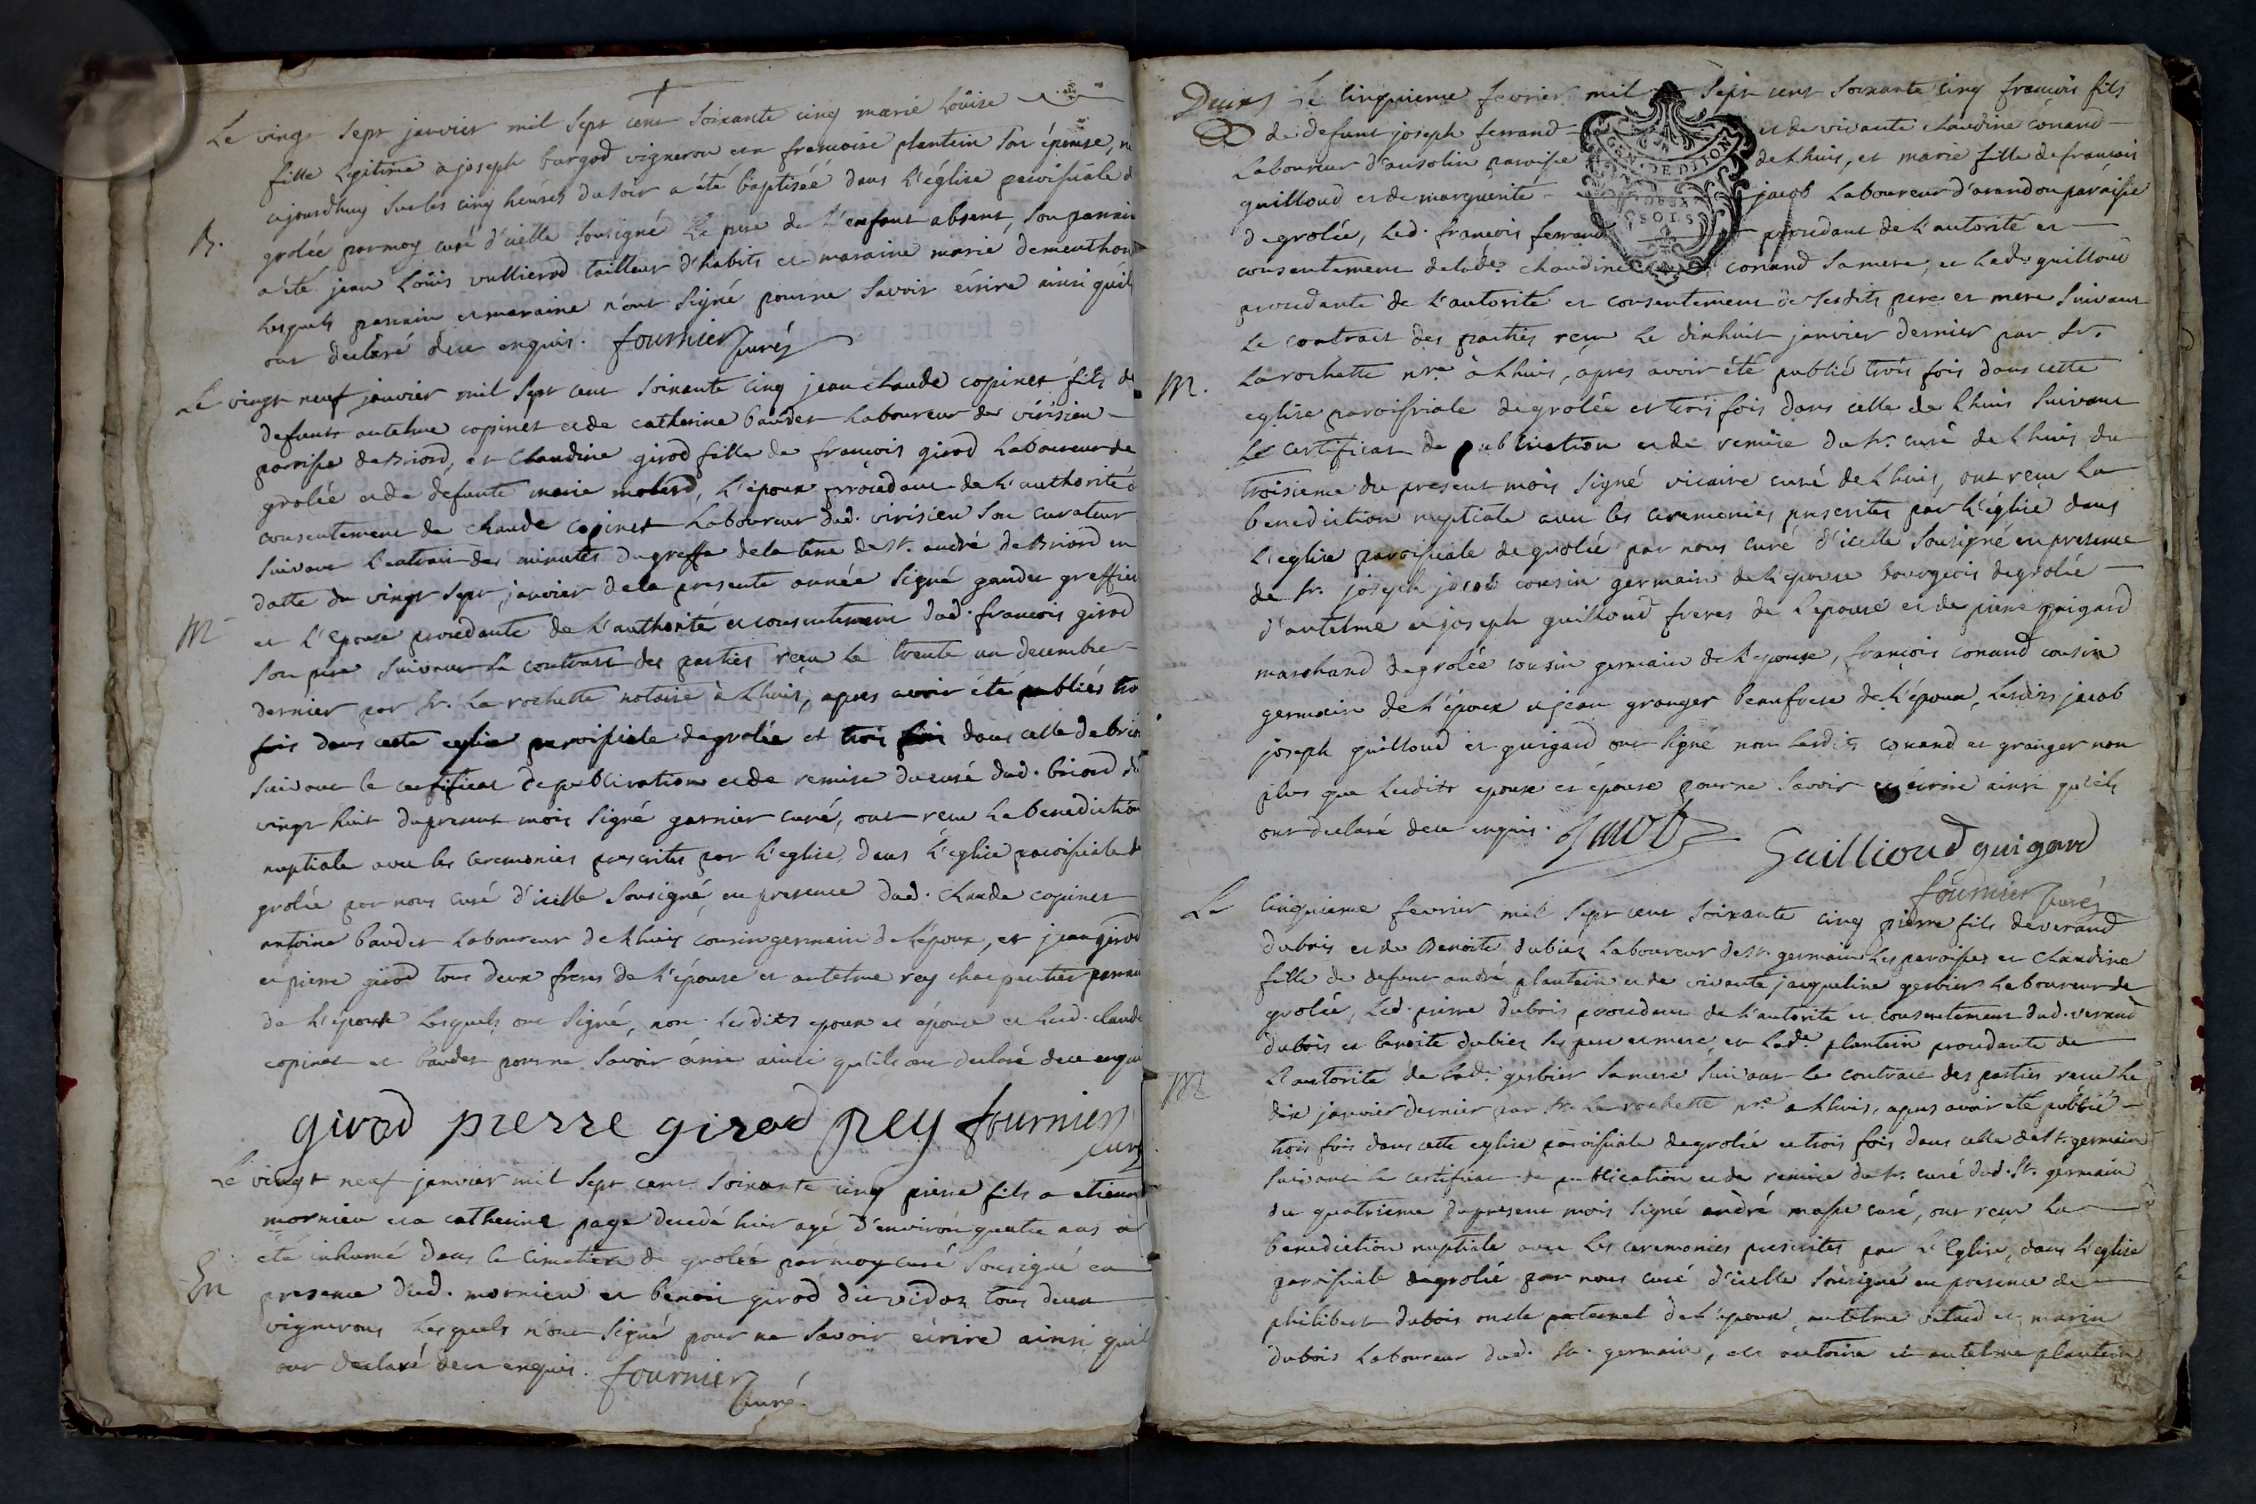 Le vingt sept janvier mil sept cent soixante cinq marie Loüise
fille legitime a joseph burgod vigneron et a francoise plantein son épouse, n
aujourdhuy sur les cinq heures du soir a été baptisée dans l'église paroissiale d
B.
grolée par moy curé d'icelle soussigné le pere de l'enfant absent, son parrain
a été jean Loüis vullierod tailleur d'habits et maraine marie dementhon
lesquels parrain et maraine n'ont signé pour ne savoir écrire ainsi quil
ont declaré de ce enquis. fournier curé
Le vingt neuf janvier mil sept cent soixante cinq jean claude copinet fils de
defunt antelme copinet et de catherine baudet laboureur de virisieu
paroisse de Briord, et Claudine girod fille de françois girod laboureur de
grolée et de defunte marie molard, l'époux procedant de l'authorité
consentement de claude copinet laboureur dud. virisieu son curateur
suivant l'extrait des minutes du greffe de la terre de st. andré de Briord en
datte du vingt sept janvier de la presente année signé gaudet greffier
M
et l'epouse procedante de l'authorité et consentement dud. francois girod
son pere suivant le contract des parties reçu le trente un decembre
dernier par sr. La rochette notaire à Lhuis, apres avoir été publiés tro
fois dans cette eglise paroissiale de grolée et trois fois dans celle de brio
suivant le certificat de publication et de remise du curé dud. briord du
vingt huit du present mois signé garnier curé, ont reçu la benediction
nuptiale avec les ceremonies prescrites par l'eglise, dans l'église paroissiale de
grolée par nous curé d'icelle soussigné, en presence dud. claude copinet
antoine baudet laboureur de Lhuis cousin germain de l'époux, et jean girod
et pierre girod tous deux freres de l'épouse et antelme rey charpentier
de l'épouse lesquels ont signé, non lesdits epoux et épouse et led. claude
copinet et baudet pour ne savoir écrire ainsi qu'ils ont declaré de ce enqui
girod pierre girod Rey fournier
curé
Le vingt neuf janvier mil sept cent soixante cinq pierre fils a etienne
mornieu et a catherine page decedé hier agé d'environ quatre ans a
été inhumé dans le cimetiere de grolée par moy curé soussigné en
En
presence dud. mornieu et benoit girod du vidon tous deux
vignerons lesquels n'ont signé pour ne savoir écrire ainsi quil
ont declaré de ce enquis. fournier
curé.
Deux
Le cinquieme fevrier mil sept cent soixante cinq francois fils
de defunt joseph ferrand et de vivante claudine conand
GEN. DE DION
DEUX
SOLS
laboureur d'ansolin paroisse de Lhuis, et marie fille de francois
guilloud et de marguerite jacob laboureur d'arandon paroisse
de grolée, led. francois ferrand procedant de l'autorité et
consentement de lade. claudine conand sa mere, et lade. guilloud
procedante de l'autorité et consentement de sesdits pere et mere suivant
le contract des parties reçu le dixhuit janvier dernier par sr.
M.
Larochette nre. à Lhuis, apres avoir été publié trois fois dans cette
eglise paroissiale de grolée et trois fois dans celle de Lhuis suivant
le certificat de publication et de remise du sr. curé de Lhuis, du
troisieme du present mois signé vicaire curé de Lhuis, ont reçu la
benediction nuptiale avec les ceremonies prescrites par l'église dans
l'eglise paroissiale de grolée par nous curé d'icelle soussigné en presence
de sr. joseph jacob cousin germain de l'épouse bourgeois de grolée
d'antelme et joseph guilloud freres de l'epouse et de pierre guigard
marchand de grolée cousin germain de l'epouse, françois conand cousin
germain de l'époux et jean granger beaufrere de l'époux, lesdits jacob
joseph guilloud et guigard ont signé non lesdits conand et granger non
plus que lesdits epoux et épouse pour ne savoir écrire ainsi qu'ils
ont declaré de ce enquis. Jacob
Guillioud guigard
fournier curé
Le cinquieme fevrier mil sept cent soixante cinq pierre fils de verand
dubois et de Benoite dubiez laboureur de st. germain les paroisses et claudine
fille de defunt andré plantein et de vivante jacqueline gerbier laboureur de
grolée, led. pierre dubois procedant de l'autorité et consentement dud. verand
dubois et benoite dubiez ses pere et mere, et lade. plantein procedante de
M
l'autorité de lade. gerbier sa mere suivant le contract des parties reçu le
dix janvier dernier par sr. La rochette nre. a Lhuis, apres avoir été publié
trois fois dans cette eglise paroissiale de grolée et trois fois dans celle de st. germain
suivant le certificat de publication et de remise du sr. curé dud. St. germain
du quatrieme du present mois signé andré masse curé, ont reçu la
benediction nuptiale avec les ceremonies prescrites par l'Eglise, dans l'eglise
paroissiale de grolée par nous curé d'icelle soussigné en presence de
philibert dubois oncle paternel de l'époux, antelme et marin
dubois laboureur dud. st. germain, et antoine et antelme plantein